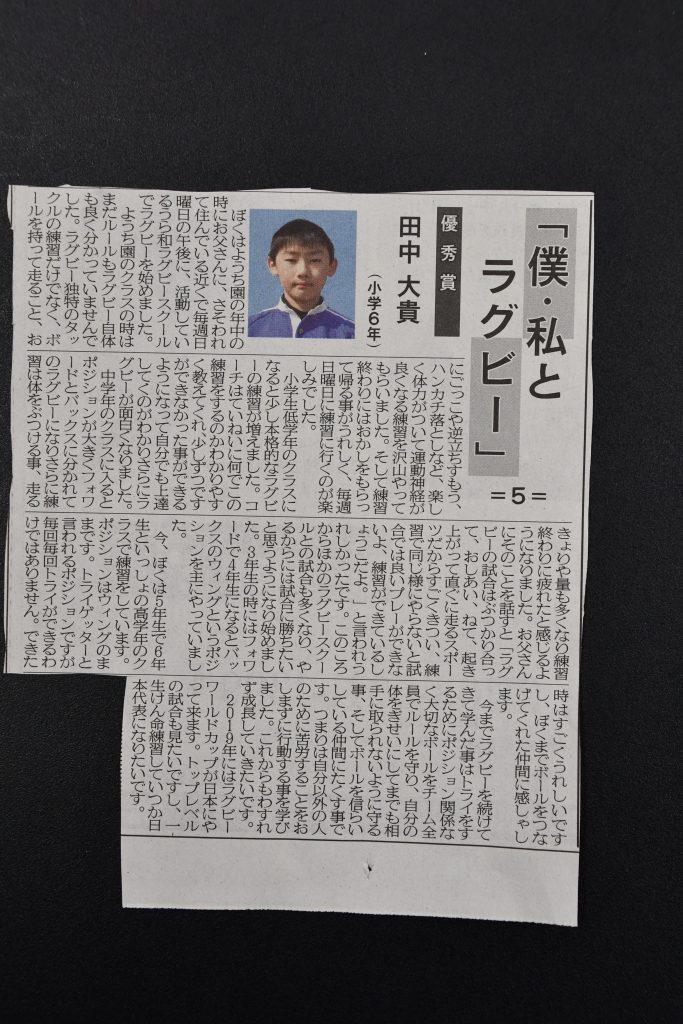 「僕・私と
ラグビー」
＝5＝
優秀賞
田中 大貴
（小学6年）
ぼくはようち園の年中の
時にお父さんに、さそわれ
て住んでいる近くで毎週日
曜日の午後に、活動してい
るうら和ラグビースクール
でラグビーを始めました。
ようち園のクラスの時は
まだルールもラグビー自体
も良く分かっていませんで
した。ラグビー独特のタッ
クルの練習だけでなく、ボ
ールを持って走ること、お
にごっこや逆立ちすもう、
ハンカチ落としなど、楽し
く体力がついて運動神経が
良くなる練習を沢山やって
もらいました。そして練習
終わりにはおかしをもらっ
て帰る事がうれしく、毎週
日曜日に練習に行くのが楽
しみでした。
小学生低学年のクラスに
なると少し本格的なラグビ
ーの練習が増えました。コ
ーチはていねいに何でこの
練習をするのかわかりやす
く教えてくれ、少しずつです
ができなかった事ができる
ようになって自分でも上達
してくのがわかりさらにラ
グビーが面白くなりました。
中学年のクラスに入ると
ポジションが大きくフォワ
ードとバックスに分かれて
のラグビーになりさらに練
習は体をぶつける事、走る
きょりや量も多くなり練習
終わりに疲れたと感じるよ
うになりました。お父さん
にそのことを話すと「ラグ
ビーの試合はぶつかり合っ
て、おしあい、ねて、起き
上がって直ぐに走るスポー
ツだからすごくきつい、練
習で同じ様にやらないと試
合では良いプレーができな
いよ、練習ができているし
ょうこだよ。」と言われう
れしかったです。このころ
からほかのラグビースクー
ルとの試合も多くなり、や
るからには試合に勝ちたい
と思うようになり始めまし
た。3年生の時にはフォワ
ードで4年生になるとバッ
クスのウィングというポジ
ションを主にやっていまし
た。
今、ぼくは5年生で6年
生といっしょの高学年のク
ラスで練習をしています。
ポジションはウィングのま
まです。トライゲッターと
言われるポジションですが
毎回毎回トライができるわ
けではありません。できた
時はすごくうれしいです
し、ぼくまでボールをつな
げてくれた仲間に感しゃし
ます。
今までラグビーを続けて
きて学んだ事はトライをす
るためにポジション関係な
く大切なボールをチーム全
員でルールを守り、自分の
体をぎせいにしてまでも相
手に取られないように守る
事、そしてボールを信らい
している仲間にたくす事で
す。つまりは自分以外の人
のために苦労することをお
しまずに行動する事を学び
ました。これからもわすれ
ず成長していきたいです。
2019年にはラグビー
ワールドカップが日本にや
って来ます。トップレベル
の試合も見たいですし、一
生けん命練習していつか日
本代表になりたいです。